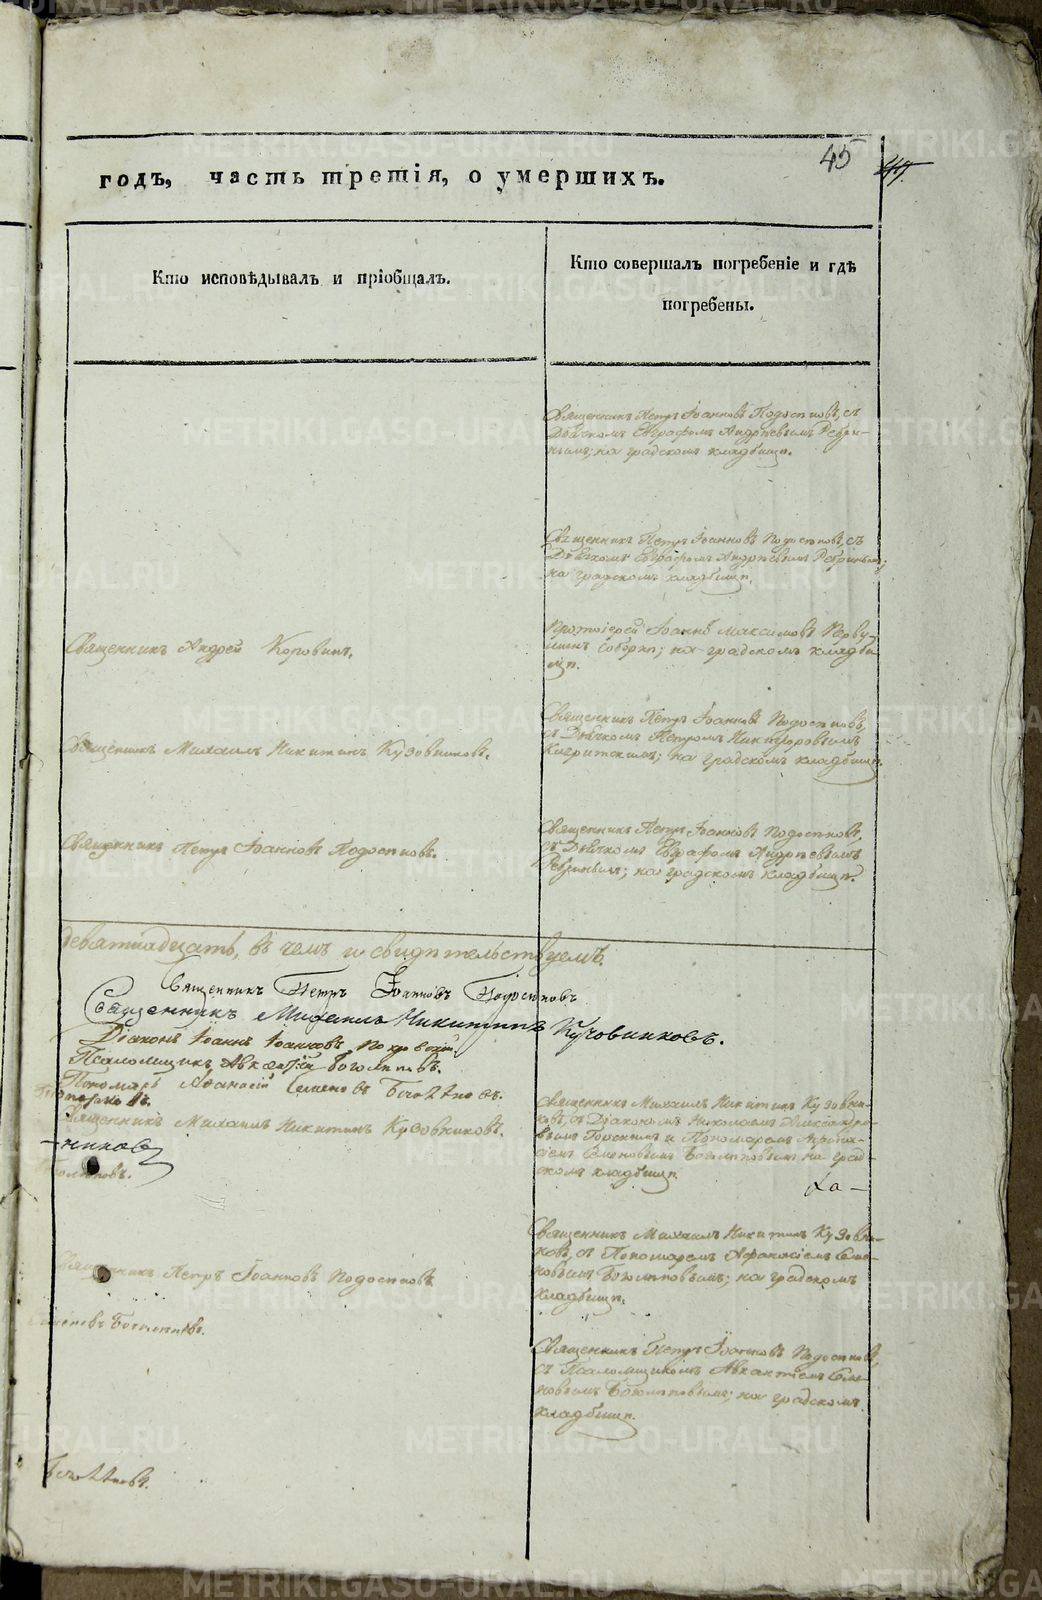 45
годъ, часть третія, о умершихъ.
Кто исповѣдывалъ и пріобщалъ.
Кто совершалъ погребеніе и гдѣ
погребены.
Священникъ Петръ Іоанновъ Подоспѣовъ, съ
Дьячкомъ Евграфомъ Андрѣевымъ
на градскомъ кладбищѣ.
Священникъ Петръ Іоанновъ Подоспѣовъ, съ
Дьячкомъ Евграфомъ Андрѣевымъ
на градскомъ кладбищѣ.
Священникъ Андрей Коровинъ.
Протоіерей Іоаннъ Максимовъ Перву-
шинъ соборнѣ; на градскомъ кладби-
щѣ.
Священникъ Михаилъ Никитинъ Кузовниковъ.
Священникъ Петръ Іоанновъ Подоспѣовъ,
съ Дьячкомъ Петромъ Никифоровымъ
на градскомъ кладбищѣ.
Священникъ Петръ Іоанновъ Подоспѣовъ.
Священникъ Петръ Іоанновъ Подоспѣовъ,
съ Дьячкомъ Евграфомъ Андрѣевымъ
на градскомъ кладбищѣ.
девятнадцать, въ чемъ и свидѣтельствуемъ.
Священникъ Петръ Іоанновъ Подоспѣовъ
Священникъ Михаилъ Никитинъ Кузовниковъ.
Діаконъ Іоаннъ Іоанновъ
Псаломщикъ Боголѣповъ.
Пономарь Афанасій Семеновъ Боголѣповъ.
Священникъ Михаилъ Никитинъ Кузовниковъ.
-никовъ
Боголѣповъ.
Священникъ Михаилъ Никитинъ Кузовни-
ковъ, съ Діакономъ Николаемъ Александро-
вымъ и Пономаремъ Афана-
сіемъ Семеновымъ Боголѣповымъ на град-
скомъ кладбищѣ.
Священникъ Петръ Іоанновъ Подоспѣовъ
Священникъ Михаилъ Никитинъ Кузовни-
ковъ, съ Пономаремъ Афанасіемъ Семе-
новымъ Боголѣповымъ; на градскомъ
кладбищѣ.
Семеновъ Боголѣповъ.
Священникъ Петръ Іоанновъ Подоспѣовъ,
съ Псаломщикомъ Семе-
новымъ Боголѣповымъ; на градскомъ
кладбищѣ.
Боголѣповъ.
METRIKI.GASO-URAL.RU